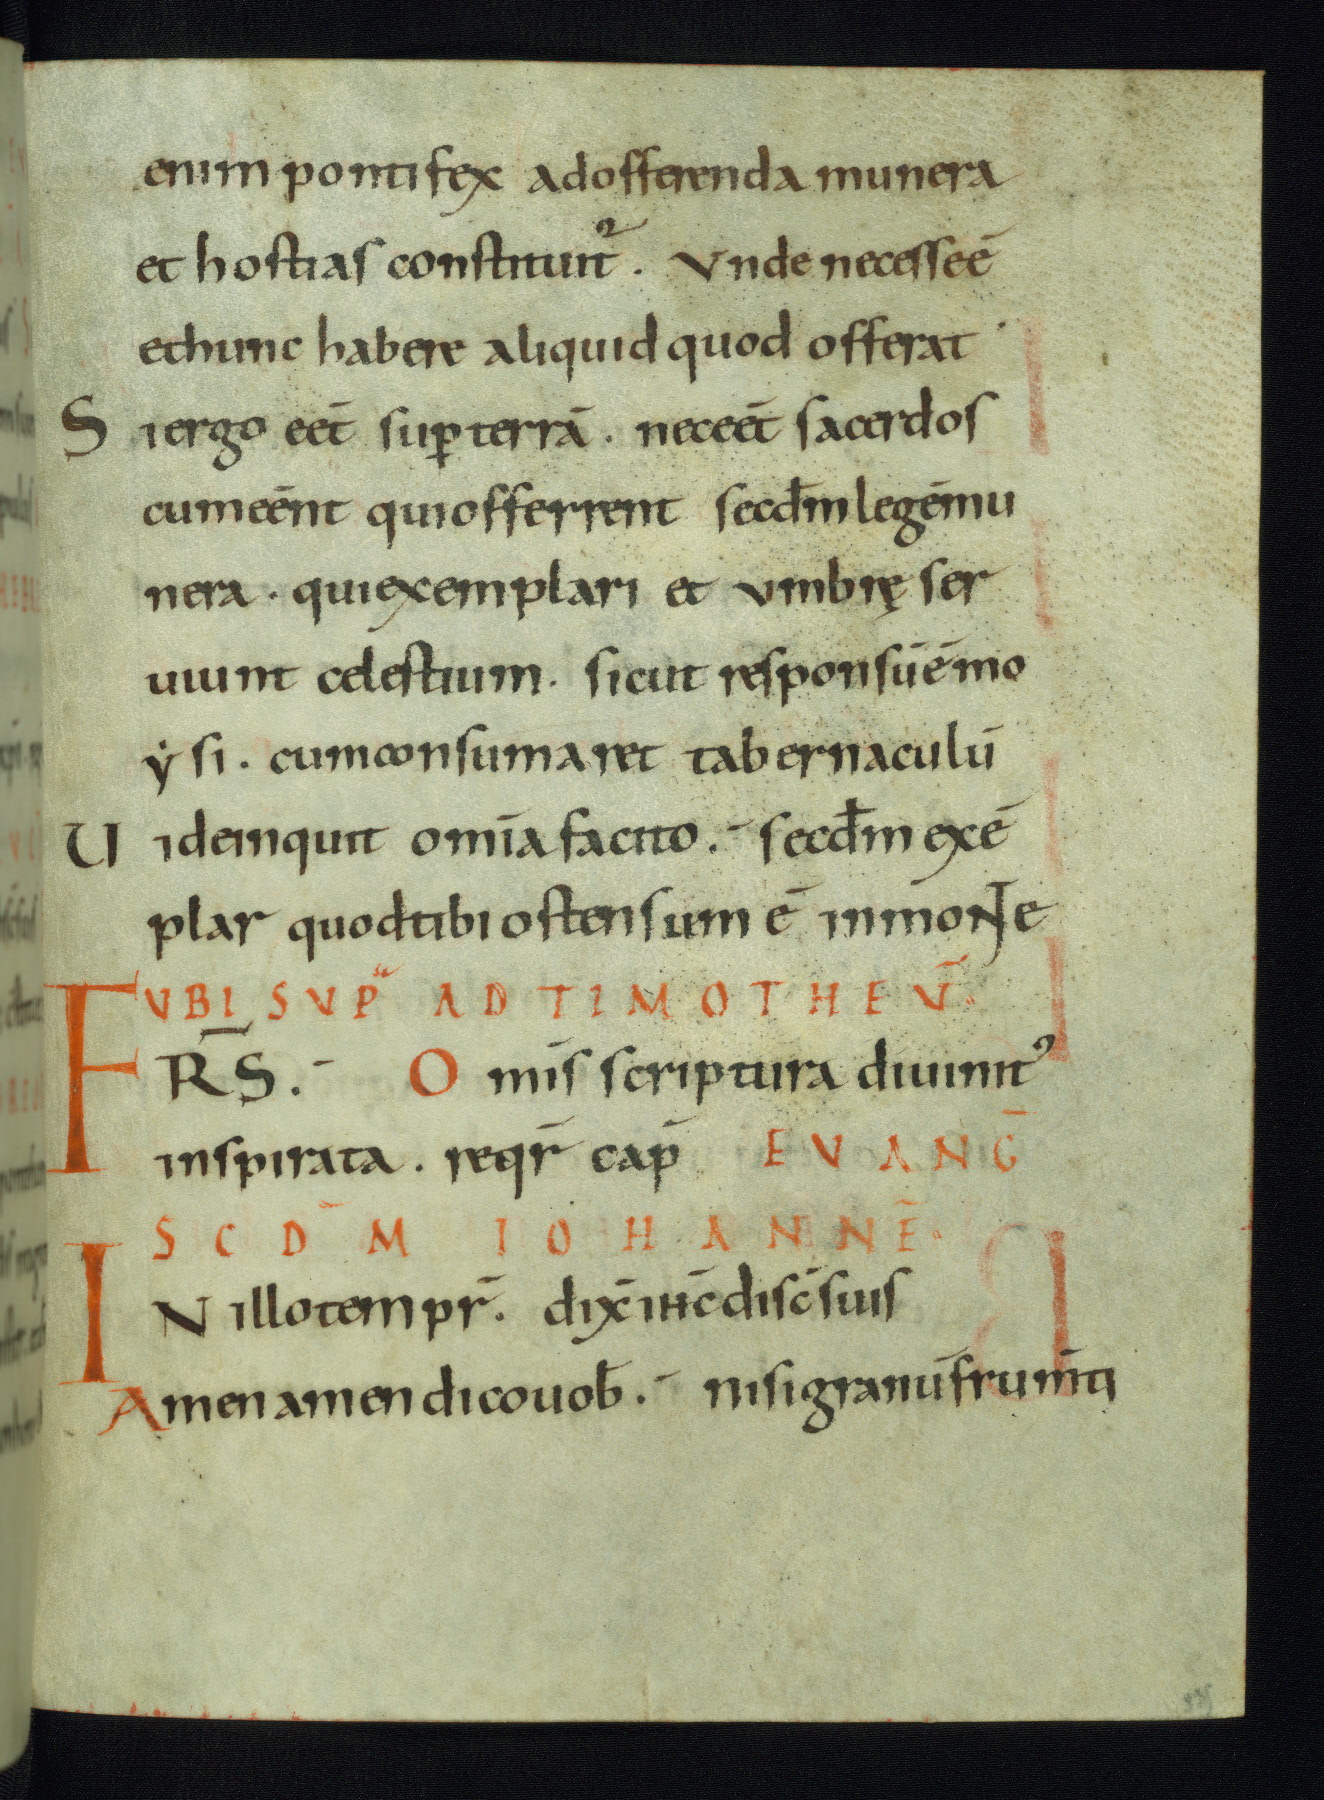 enim pontifex ad offerenda munera
et hostias constituit᷑. Vnde necesse ē
et hunc habere aliquid quod offerat
Si ergo eēt sup̱ terrā. nec eēt sacerdos
cum eēnt qui offerrent secdm̄ legē mu
nera. qui exemplari et vmbrę ser
uiunt celestium. sicut responsū ē mo
ẏsi. cum consumaret tabernaculū
Uide inquit om̄ia facito. secdm̄ exē
plar quod tibi ostensum ē in monte
VBI SVP AD TIMOTHEV̄
FRS̄. Omīs scriptura diuinit᷑
inspirata. reqr̄ cap̄ EVANḠ
SCDM̄ IOHANNĒ.
IN illo tempr̄. dix̄ ihc̄ disc̄ suis
Amen amen dico uob̄. nisi granū frum̄ti